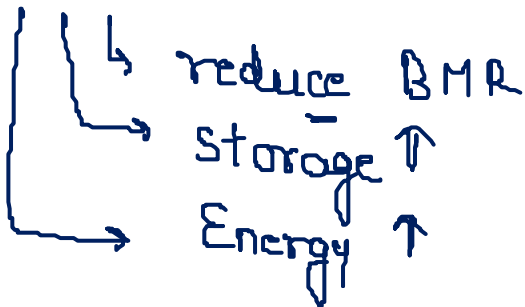 reduce BMR
Storage ↑
Energy ↑